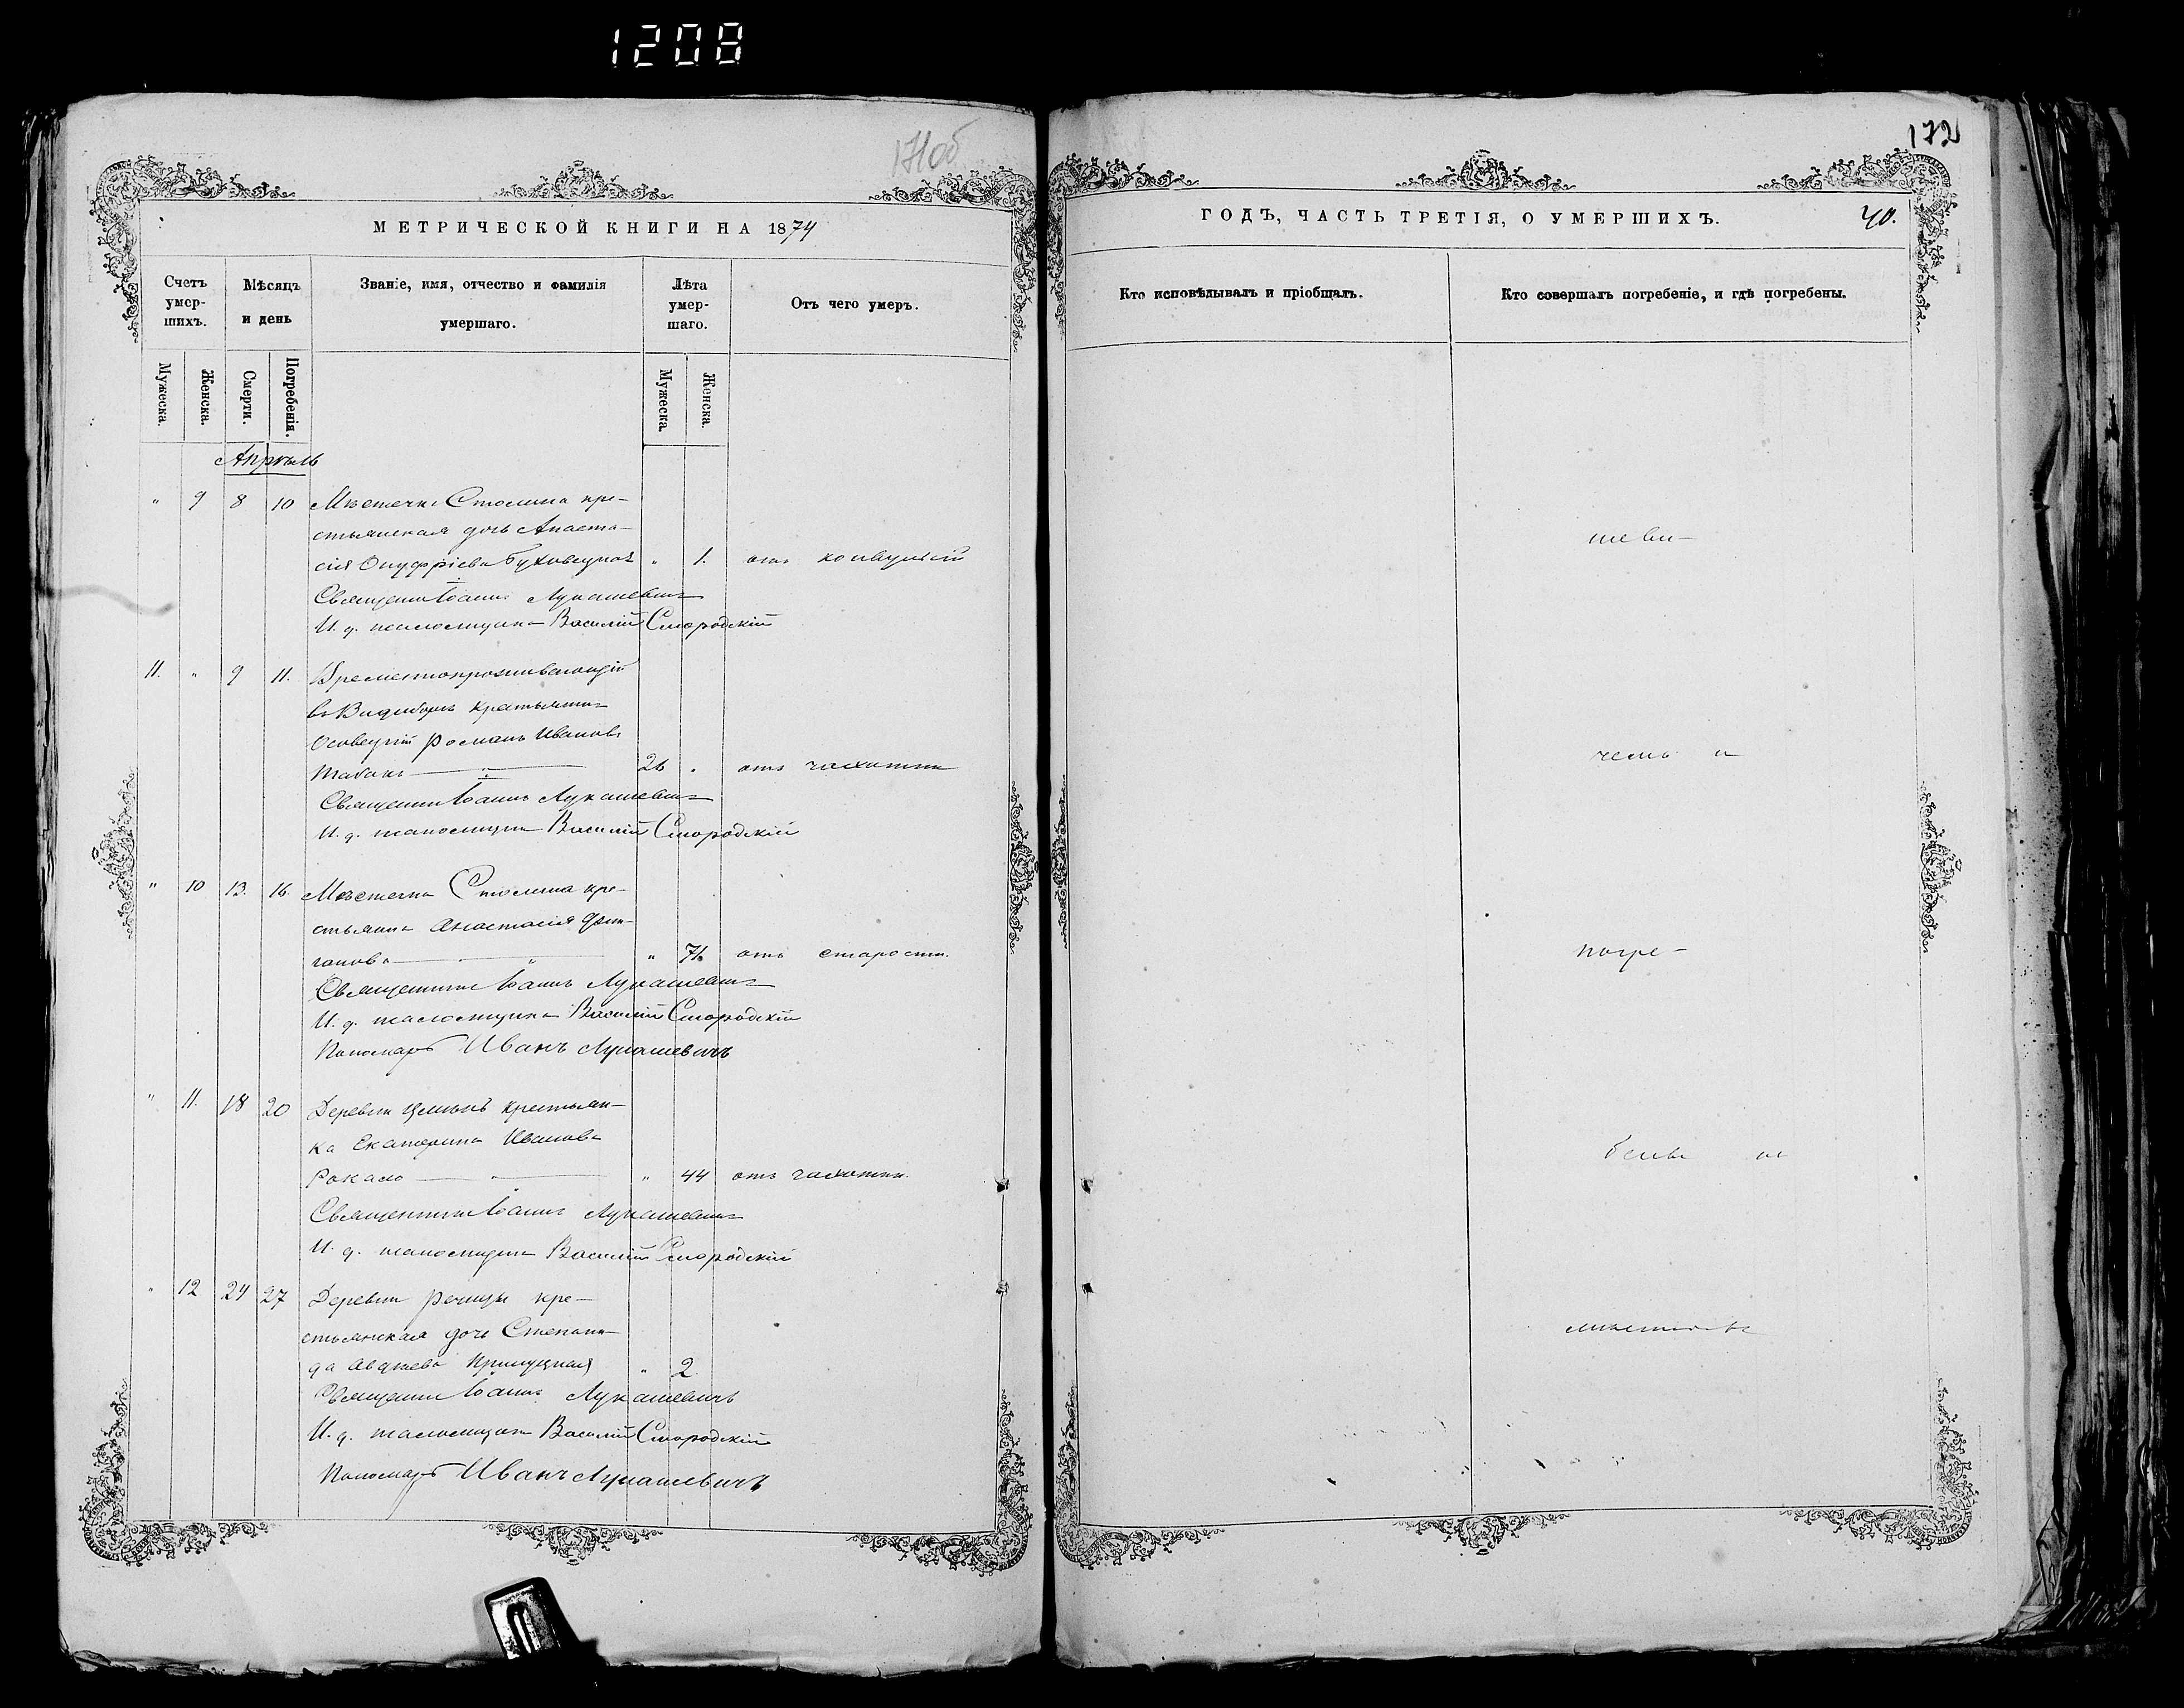 1208
171об
172
МЕТРИЧЕСКОЙ КНИГИ НА 1874
ГОДЪ, ЧАСТЬ ТРЕТІЯ, О УМЕРШИХЪ.
40.
Счетъ умер-шихъ.
Мѣсяцъ и день
Званіе, имя, отчество и фамилія умершаго.
Лѣта умер-шаго.
Отъ чего умеръ.
Кто исповѣдывалъ и пріобщалъ.
Кто совершалъ погребеніе, и гдѣ погребены.
Мужеска.
Женска.
Смерти.
Погребенія.
Мужеска.
Женска.
Апрѣль
" 9 8 10 Мѣстечка Столина кре-
стьянская дочь Анаста-
сія Онуфріева " 1. отъ конвульсій
Священникъ Іоаннъ Лукашевичъ
И. д. псаломщика Василій Смородскій
11. " 9 11. Временнопроживающій
въ Видиборѣ крестьянинъ
Осовецкій Романъ Ивановъ
26 " отъ чахотки
Священникъ Іоаннъ Лукашевичъ
И. д. псаломщика Василій Смородскій
" 10 13. 16. Мѣстечка Столина кре-
стьянка Анастасія
" 76 отъ старости.
Священникъ Іоаннъ Лукашевичъ
И. д. псаломщика Василій Смородскій
Пономарь Иванъ Лукашевичъ
" 11. 18 20 Деревни крестьян-
ка Екатерина Иванова
Рокало " 44 отъ чахотки.
Священникъ Іоаннъ Лукашевичъ
И. д. псаломщика Василій Смородскій
" 12 24 27 Деревни Речицы кре-
стьянская дочь Степани-
да Авдѣева " 2
Священникъ Іоаннъ Лукашевичъ
И. д. псаломщика Василій Смородскій
Пономарь Иванъ Лукашевичъ
погре-
бены на